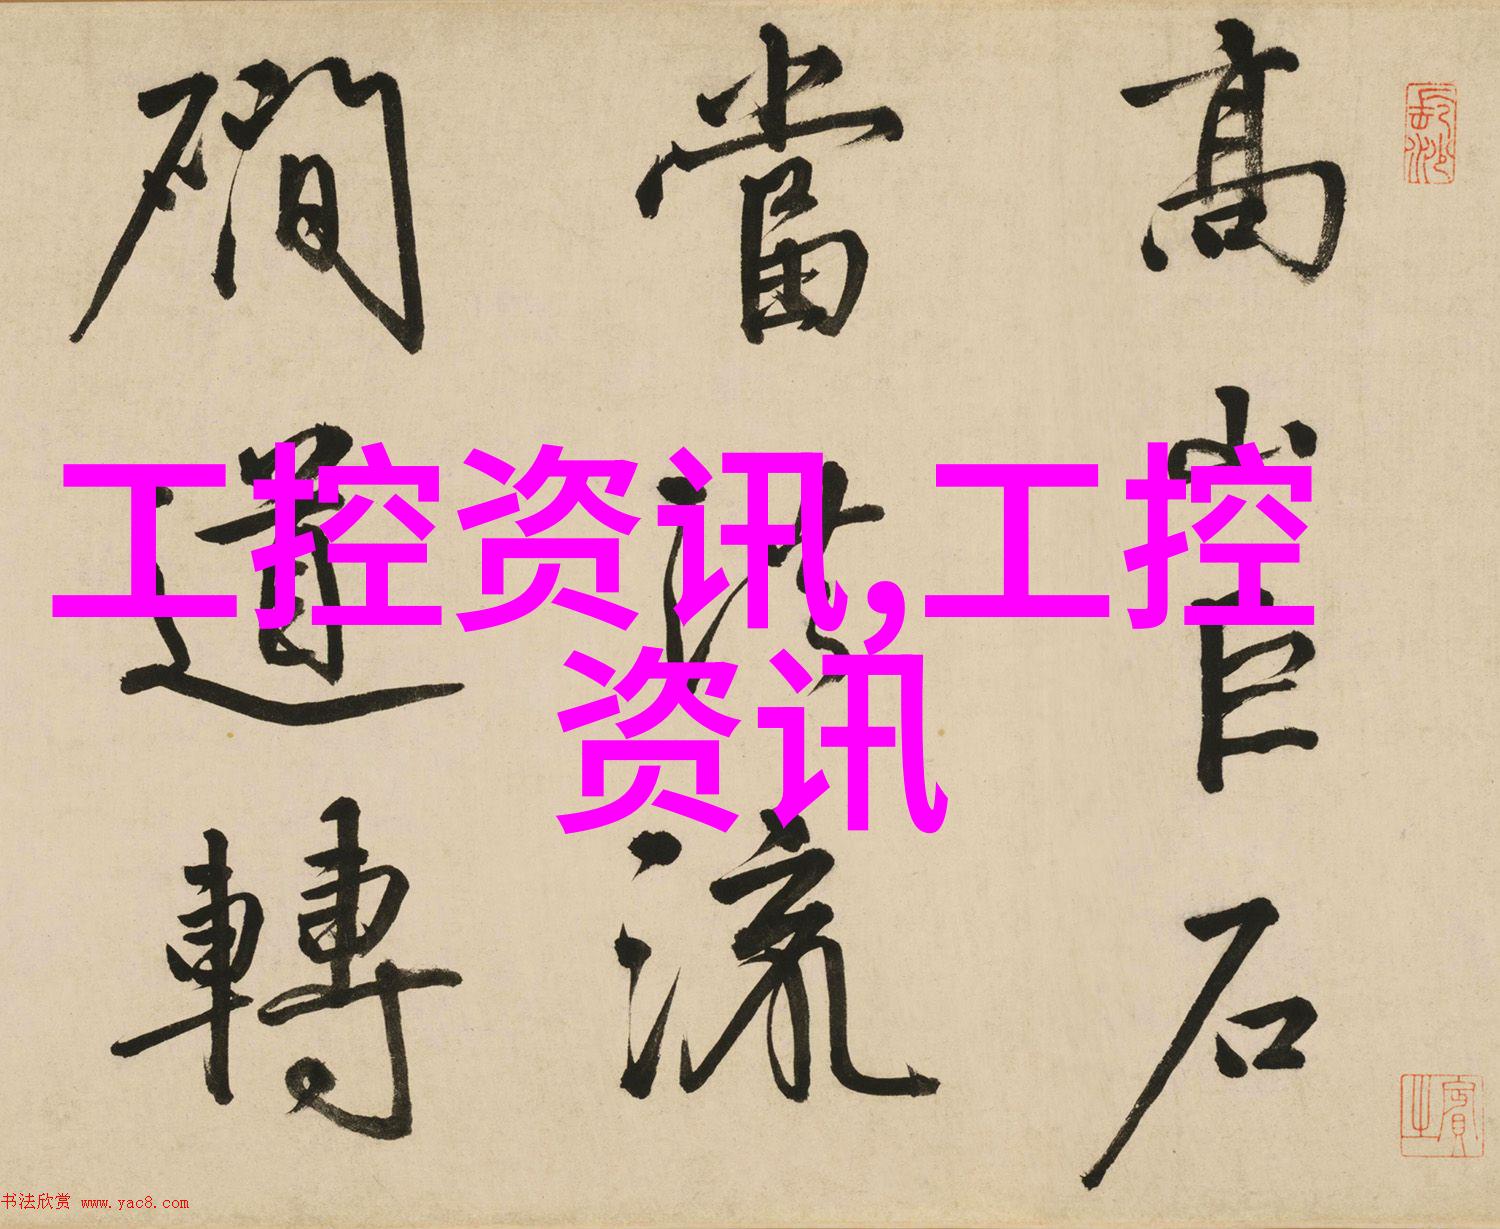 工控资讯,工控
资讯
長沙
賓之
高巨石
當流
磵道轉
书法欣赏 www.yac8.com